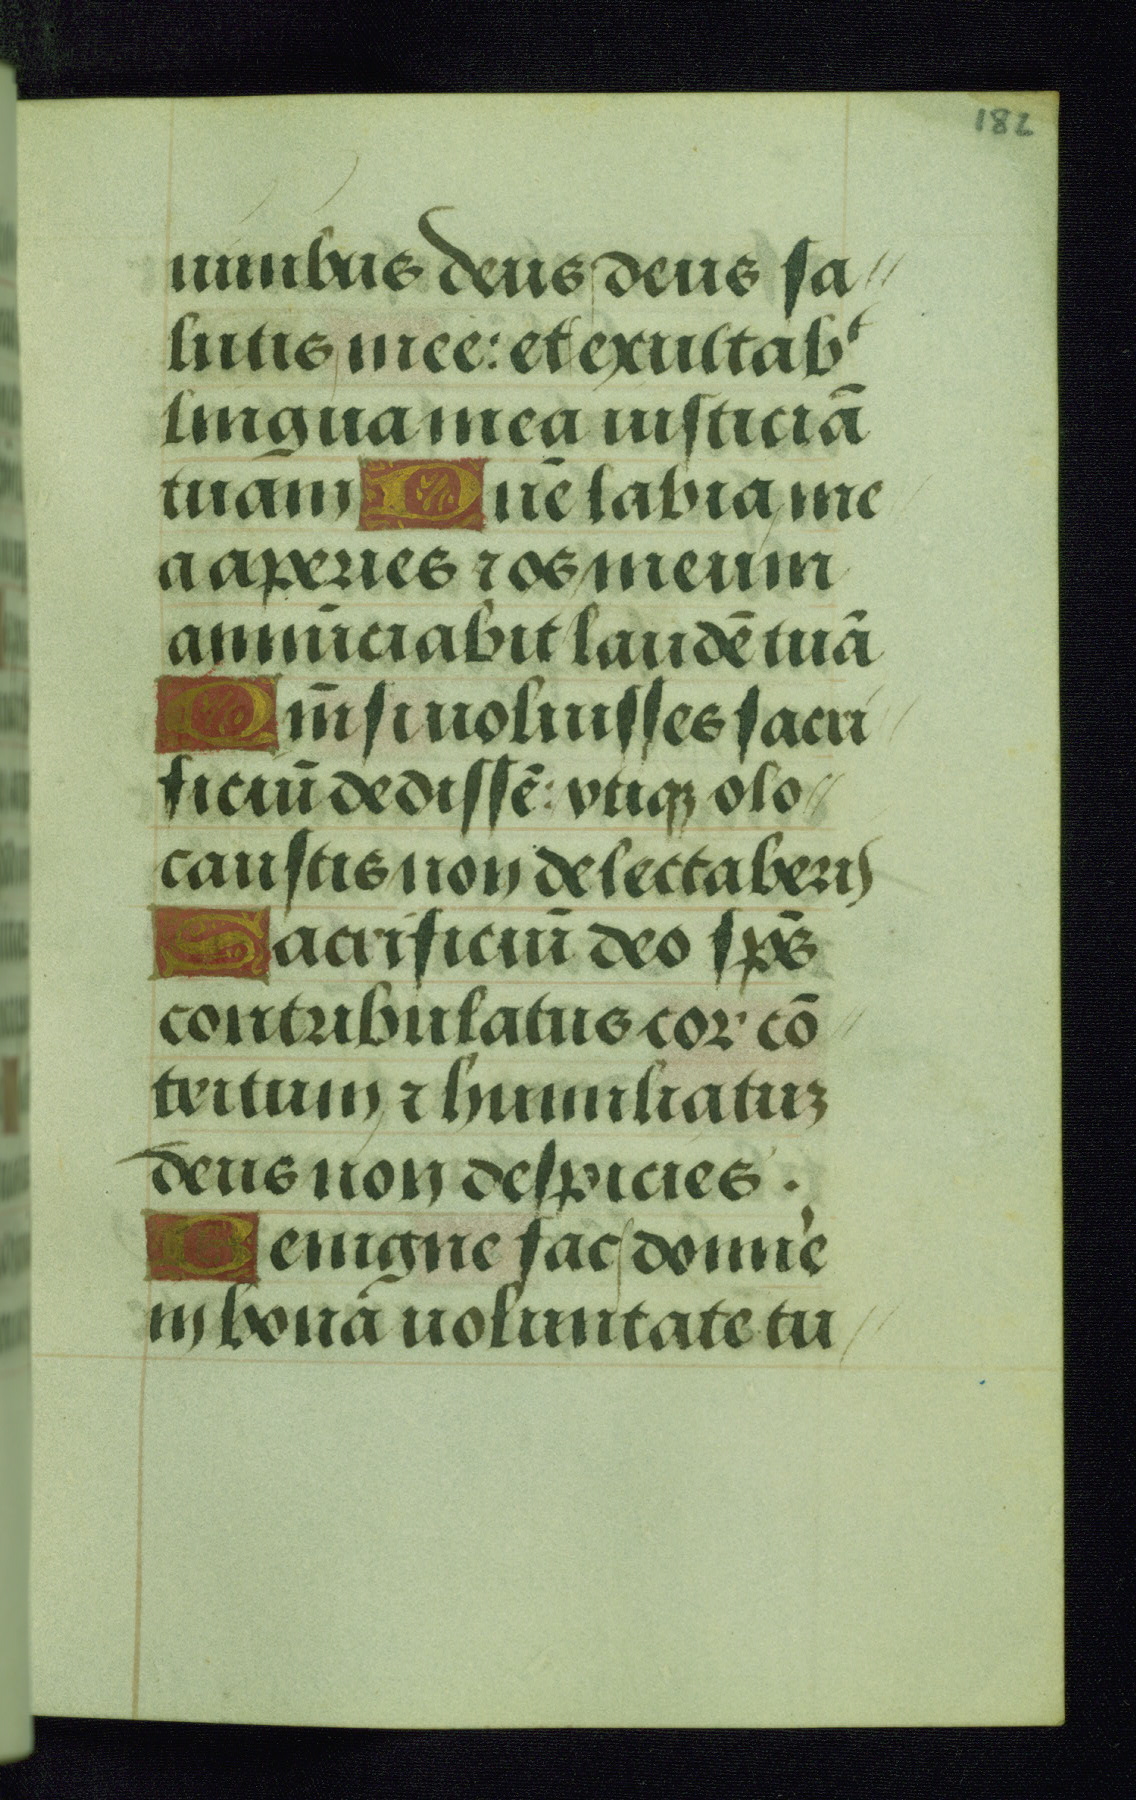 182
minibus deus deus sa//
lutis mee: et exultabᵗ
lingua mea iusticiā
tuam Dnē labia me
a aperies ⁊ os meum
annūciabit laudē tuā
Qm̄ si uoluisses sacri
ficiū dedissē: vtiqꝫ olo
caustis non delectaberis
Sacrificiū deo sps̄
contribulatus cor cō
tritum ⁊ humiliatuꝫ
deus non despicies.
Benigne fac domine
in bonā uoluntate tu